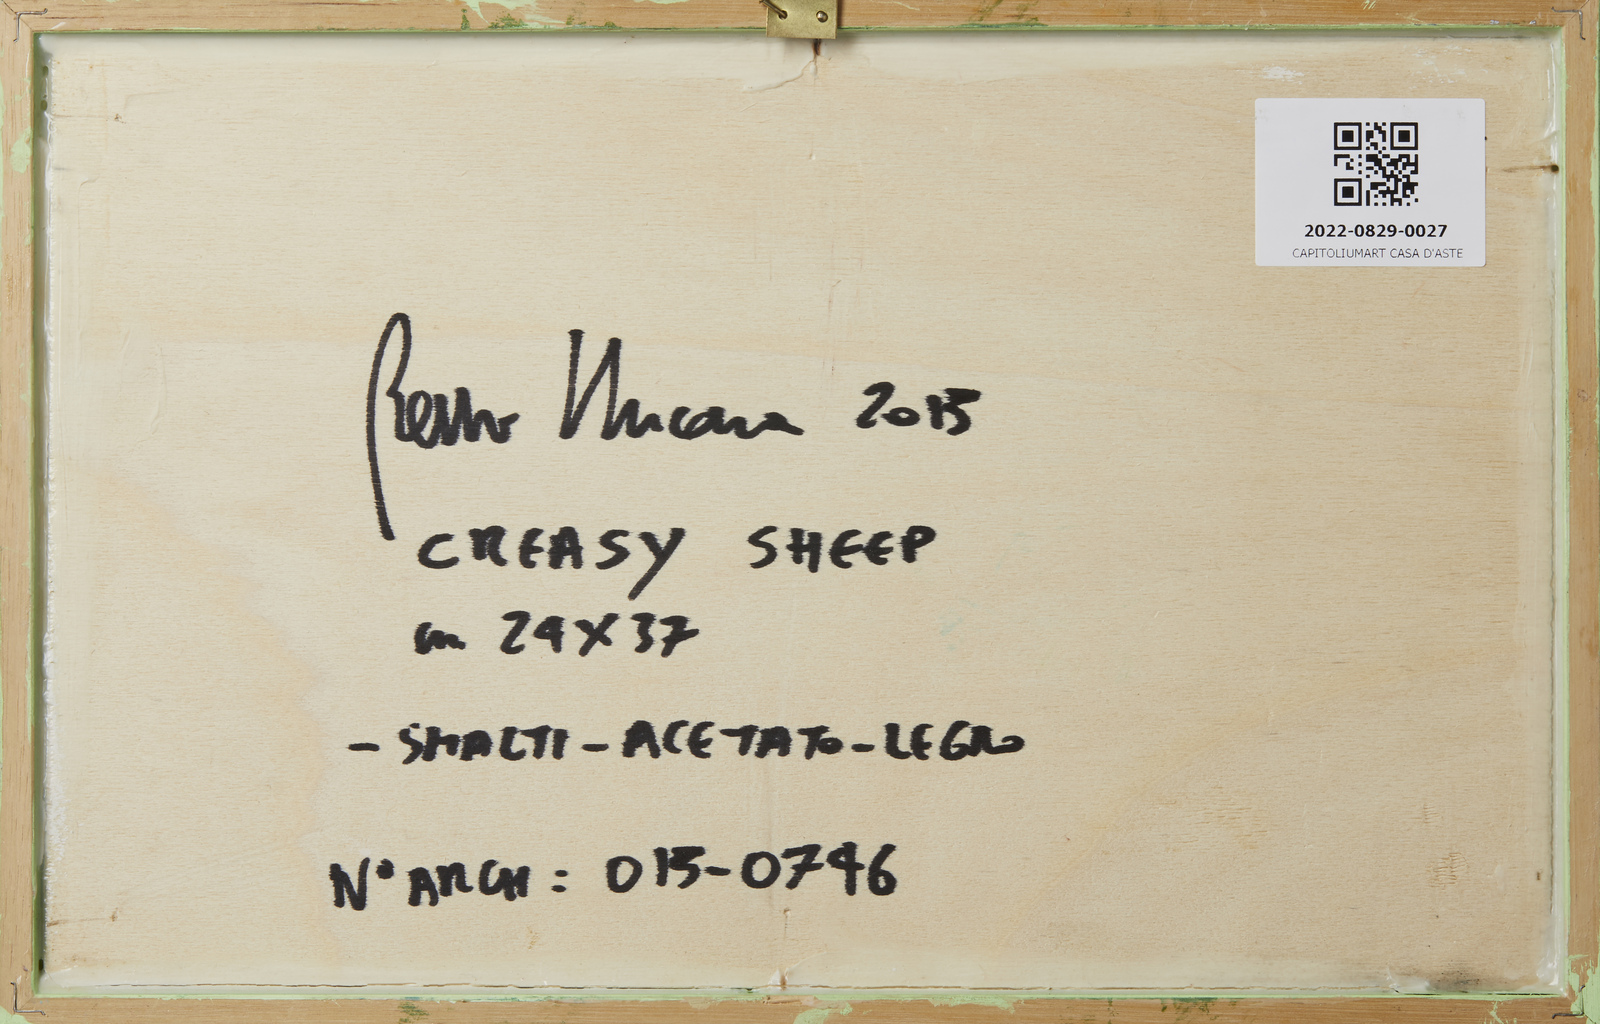 2022-0829-0027
CAPITOLIUMART CASA D'ASTE
Renzo Nucara 2015
CREASY SHEEP
cm 24X37
- SMALTI - ACETATO - LEGNO
N° ARCH: 015-0746